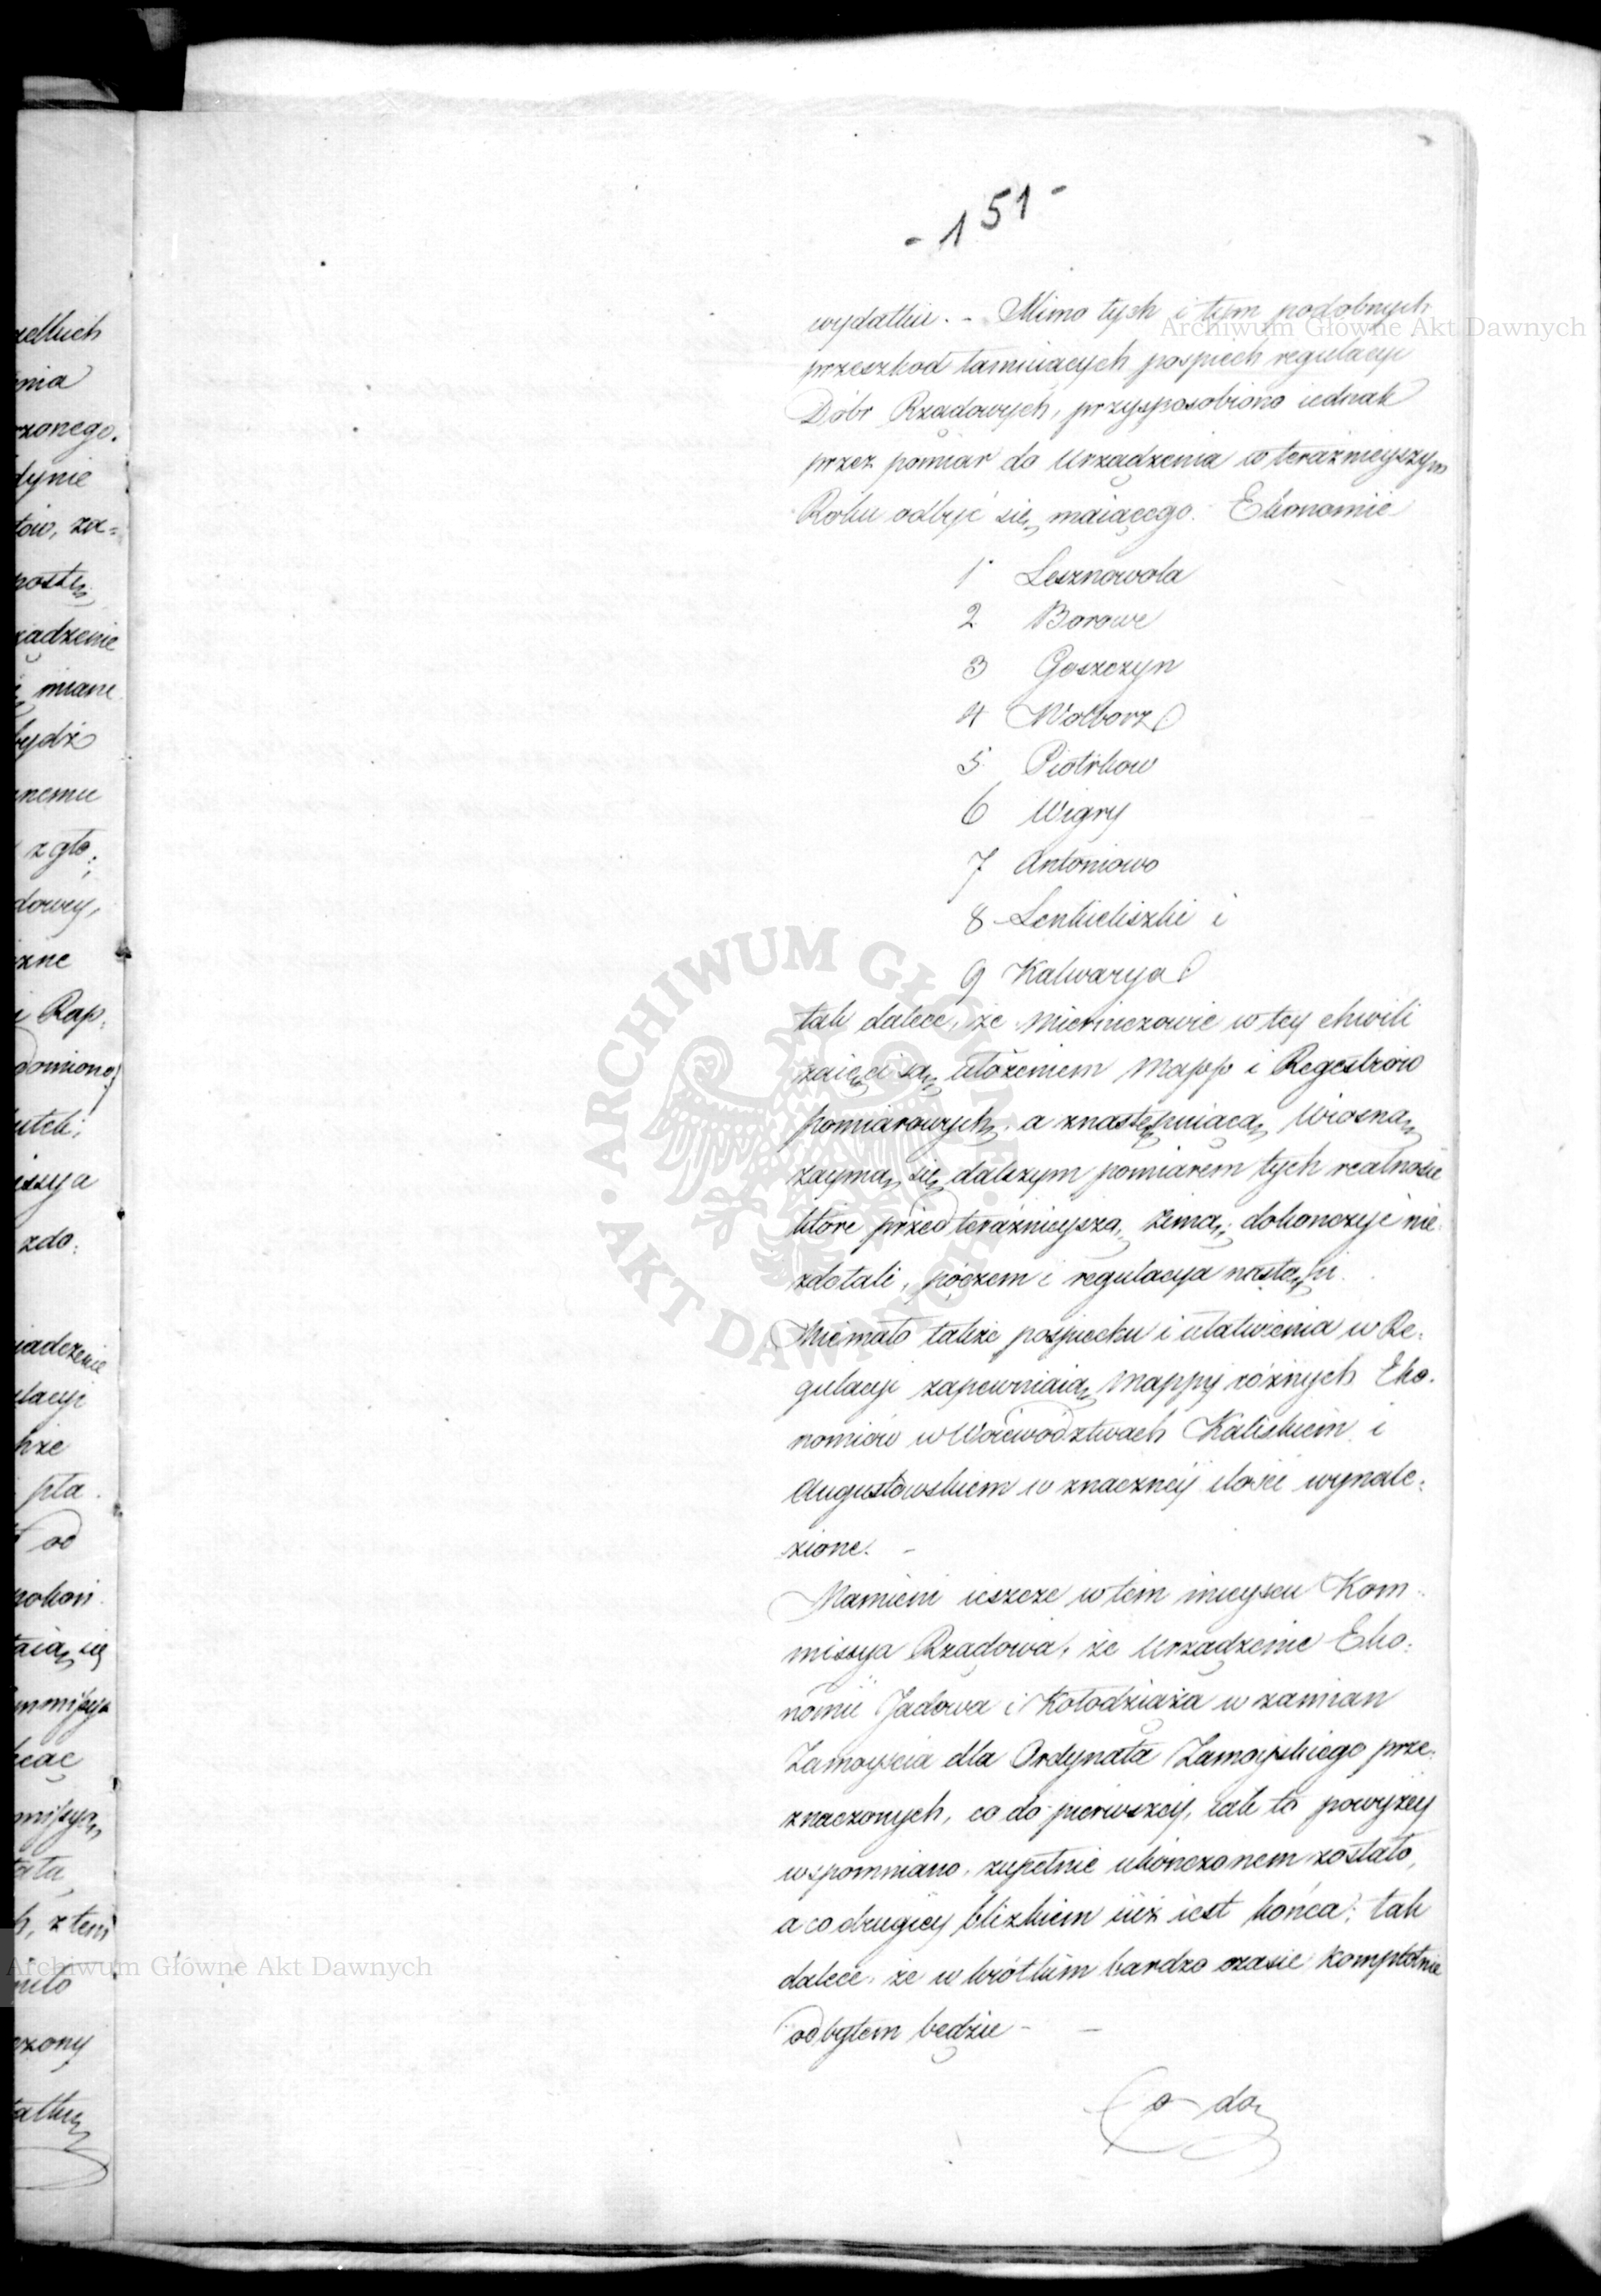 - 151 -
wydatku. - Mimo tych i tym podobnych
przeszkod tamuiących pospiech regulacyi
Dóbr Rządowych, przysposobiono iednak
przez pomiar do Urządzenia w teraźnieyszym
Roku odbyć się maiącego. Ekonomie
1 Lesznowola
2 Borowe
3 Goszczyn
4 Wolborz
5 Piotrkow
6 Wigry
7 Antoniowo
8 Lenkieliszki i
9 Kalwarya
tak dalece, że Mierniczowie w tey chwili
zaięci są ułożeniem Mapp i Regestrów
pomiarowych, a z następuiącą Wiosną
zaymą się dalszym pomiarem tych realności
które przed teraźnieyszą Zimą dokończyć nie
zdołali, póczem i regulacya nastąpi.
Niemało także pospiechu i ułatwienia w Re-
gulacyi zapewniaią Mappy różnych Eko-
nomiów w Woiewództwach Kaliskiem i
Augustowskiem w znaczney ilości wynale-
zione. -
Namieni ieszcze w tem mieyscu Kom-
missya Rządowa, że Urządzenie Eko-
nomii Jadowa i Kołodziąża w zamian
Zamościa dla Ordynata Zamoyskiego prze-
znaczonych, co do pierwszey, iak to powyżey
wspomniano, zupełnie ukończonem zostało,
a co drugiey blizkiem iuż iest końca, tak
dalece, że w krótkim bardzo czasie kompletnie
odbytem będzie - -
Co do
zelkich
enia
rzonego.
dynie
tow, za-
postę
ządzenie
miane
bydź
nemu
z gło-
dowey,
zne
i Rap-
domiono
utek,
issya
zdo-
iadczenie
ulacyi
kże
pła-
od
pokoń-
taią się
mmissya
kąc
missyą
tała
h, z tem
mito
czony
atku
Archiwum Główne Akt Dawnych
Archiwum Główne Akt Dawnych
ARCHIWUM GŁÓWNE AKT DAWNYCH